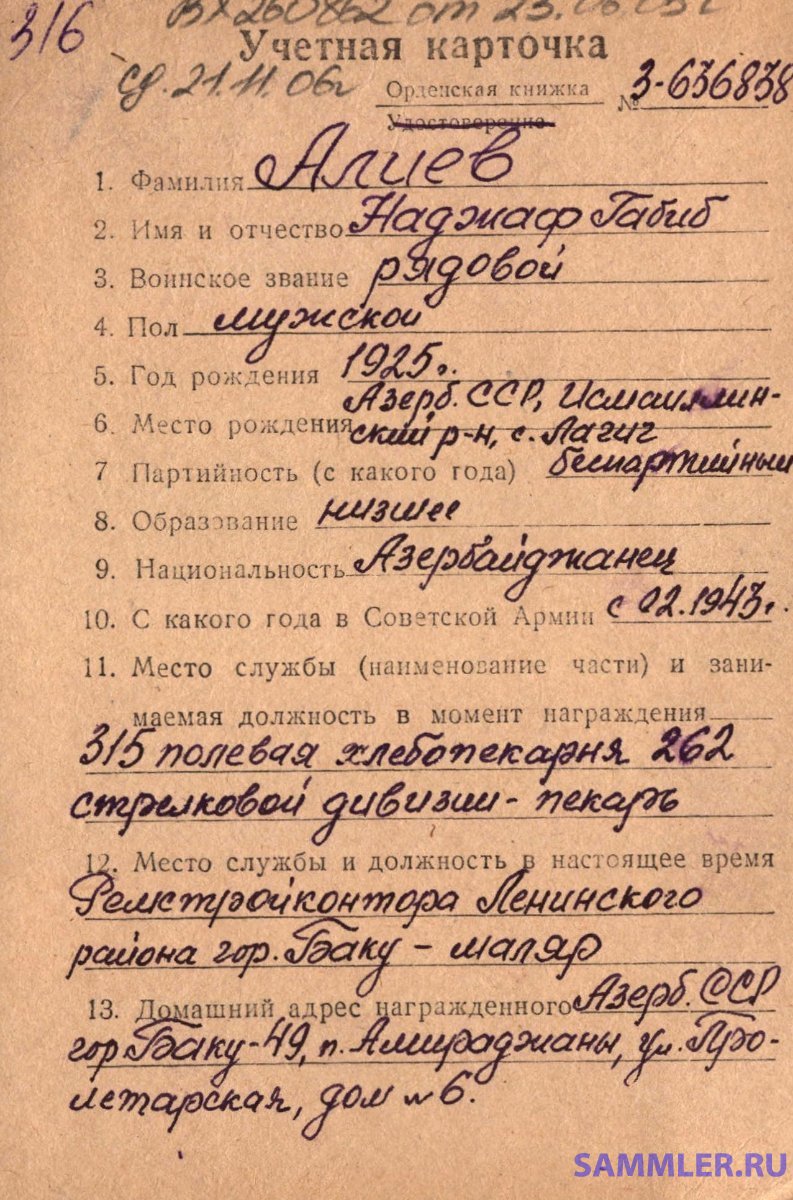 316
Вх260862 от 23.
Учетная карточка
Ср. 21.11.06г
Орденская книжка
№ З-636838
Удостоверение
1. Фамилия Алиев
2. Имя и отчество Наджаф Габиб
3. Воинское звание рядовой
4. Пол мужской
5. Год рождения 1925г.
6. Место рождения Азерб. ССР, Исмаиллин-
ский р-н, с. Лагиг
7 Партийность (с какого года) беспартийный
8. Образование низшее
9. Национальность Азербайджанец
10. С какого года в Советской Армии с 02.1943г.
11. Место службы (наименование части) и зани-
маемая должность в момент награждения
315 полевая хлебопекарня 262
стрелковой дивизии - пекарь
12. Место службы и должность в настоящее время
Ремстройконтора Ленинского
района гор. Баку - маляр
13. Домашний адрес награжденного Азерб. ССР
гор Баку-49, п. Амираджаны, ул. Про-
летарская, дом № 6.
SAMMLER.RU